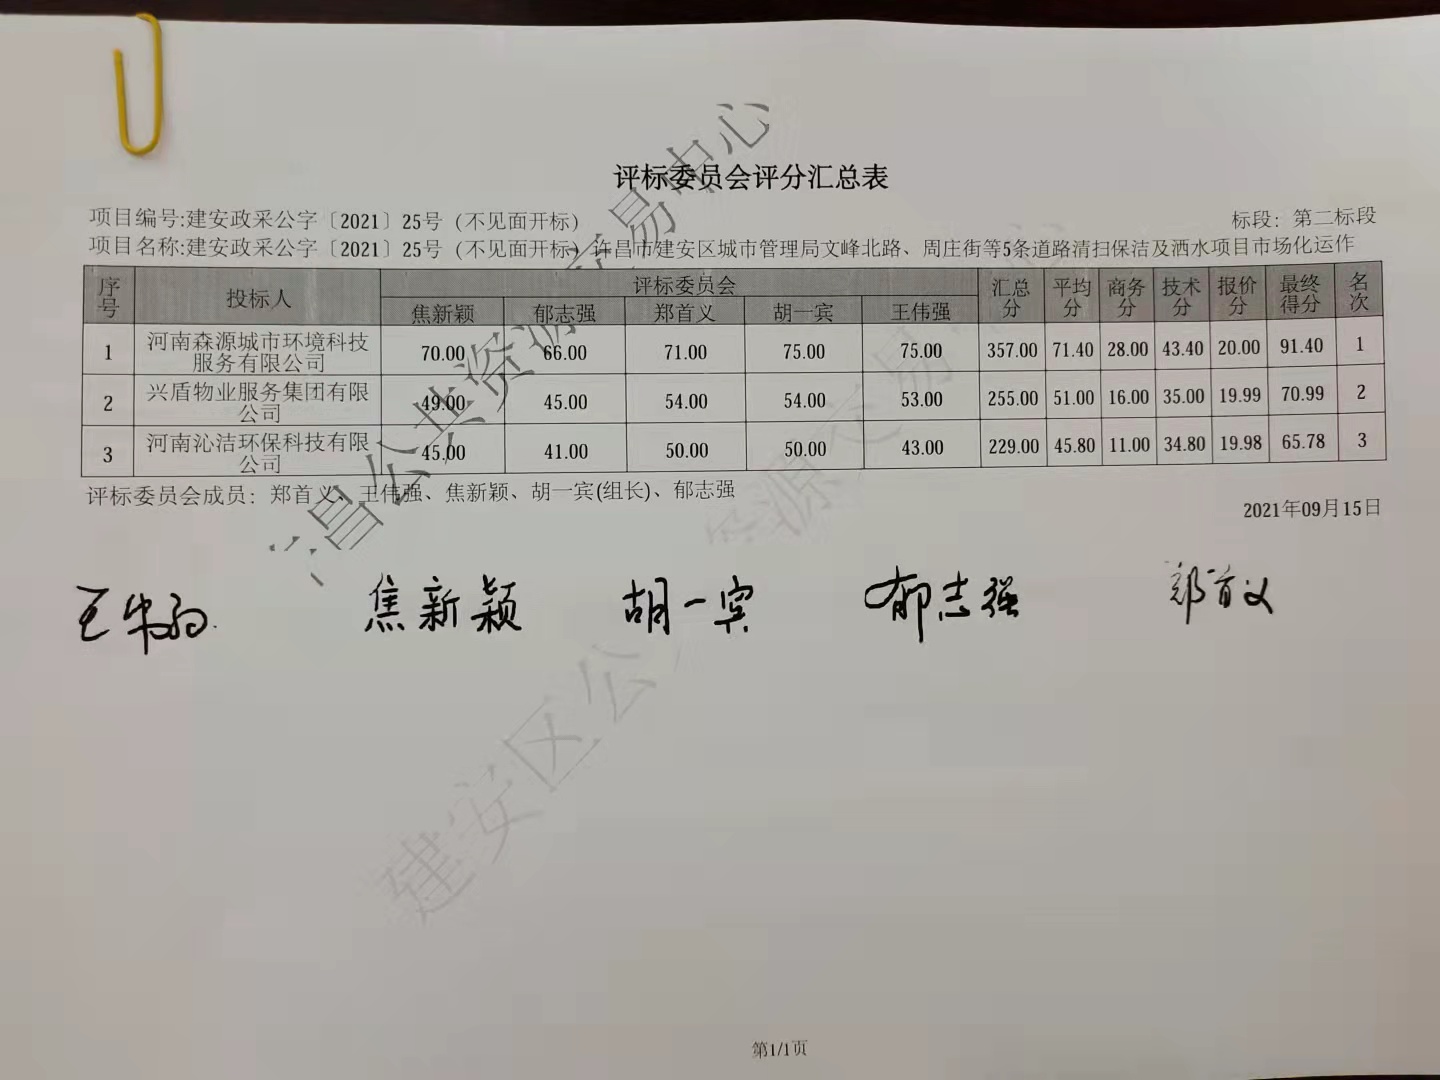 评标委员会评分汇总表
项目编号:建安政采公字〔2021〕25号（不见面开标） 标段：第二标段
项目名称:建安政采公字〔2021〕25号（不见面开标）许昌市建安区城市管理局文峰北路、周庄街等5条道路清扫保洁及洒水项目市场化运作
序号 投标人 评标委员会 汇总分 平均分 商务分 技术分 报价分 最终得分 名次
焦新颖 郁志强 郑首义 胡一宾 王伟强
1 河南森源城市环境科技服务有限公司 70.00 66.00 71.00 75.00 75.00 357.00 71.40 28.00 43.40 20.00 91.40 1
2 兴盾物业服务集团有限公司 49.00 45.00 54.00 54.00 53.00 255.00 51.00 16.00 35.00 19.99 70.99 2
3 河南沁洁环保科技有限公司 45.00 41.00 50.00 50.00 43.00 229.00 45.80 11.00 34.80 19.98 65.78 3
评标委员会成员：郑首义、王伟强、焦新颖、胡一宾(组长)、郁志强
2021年09月15日
焦新颖 胡一宾 郁志强 郑首义
第1/1页